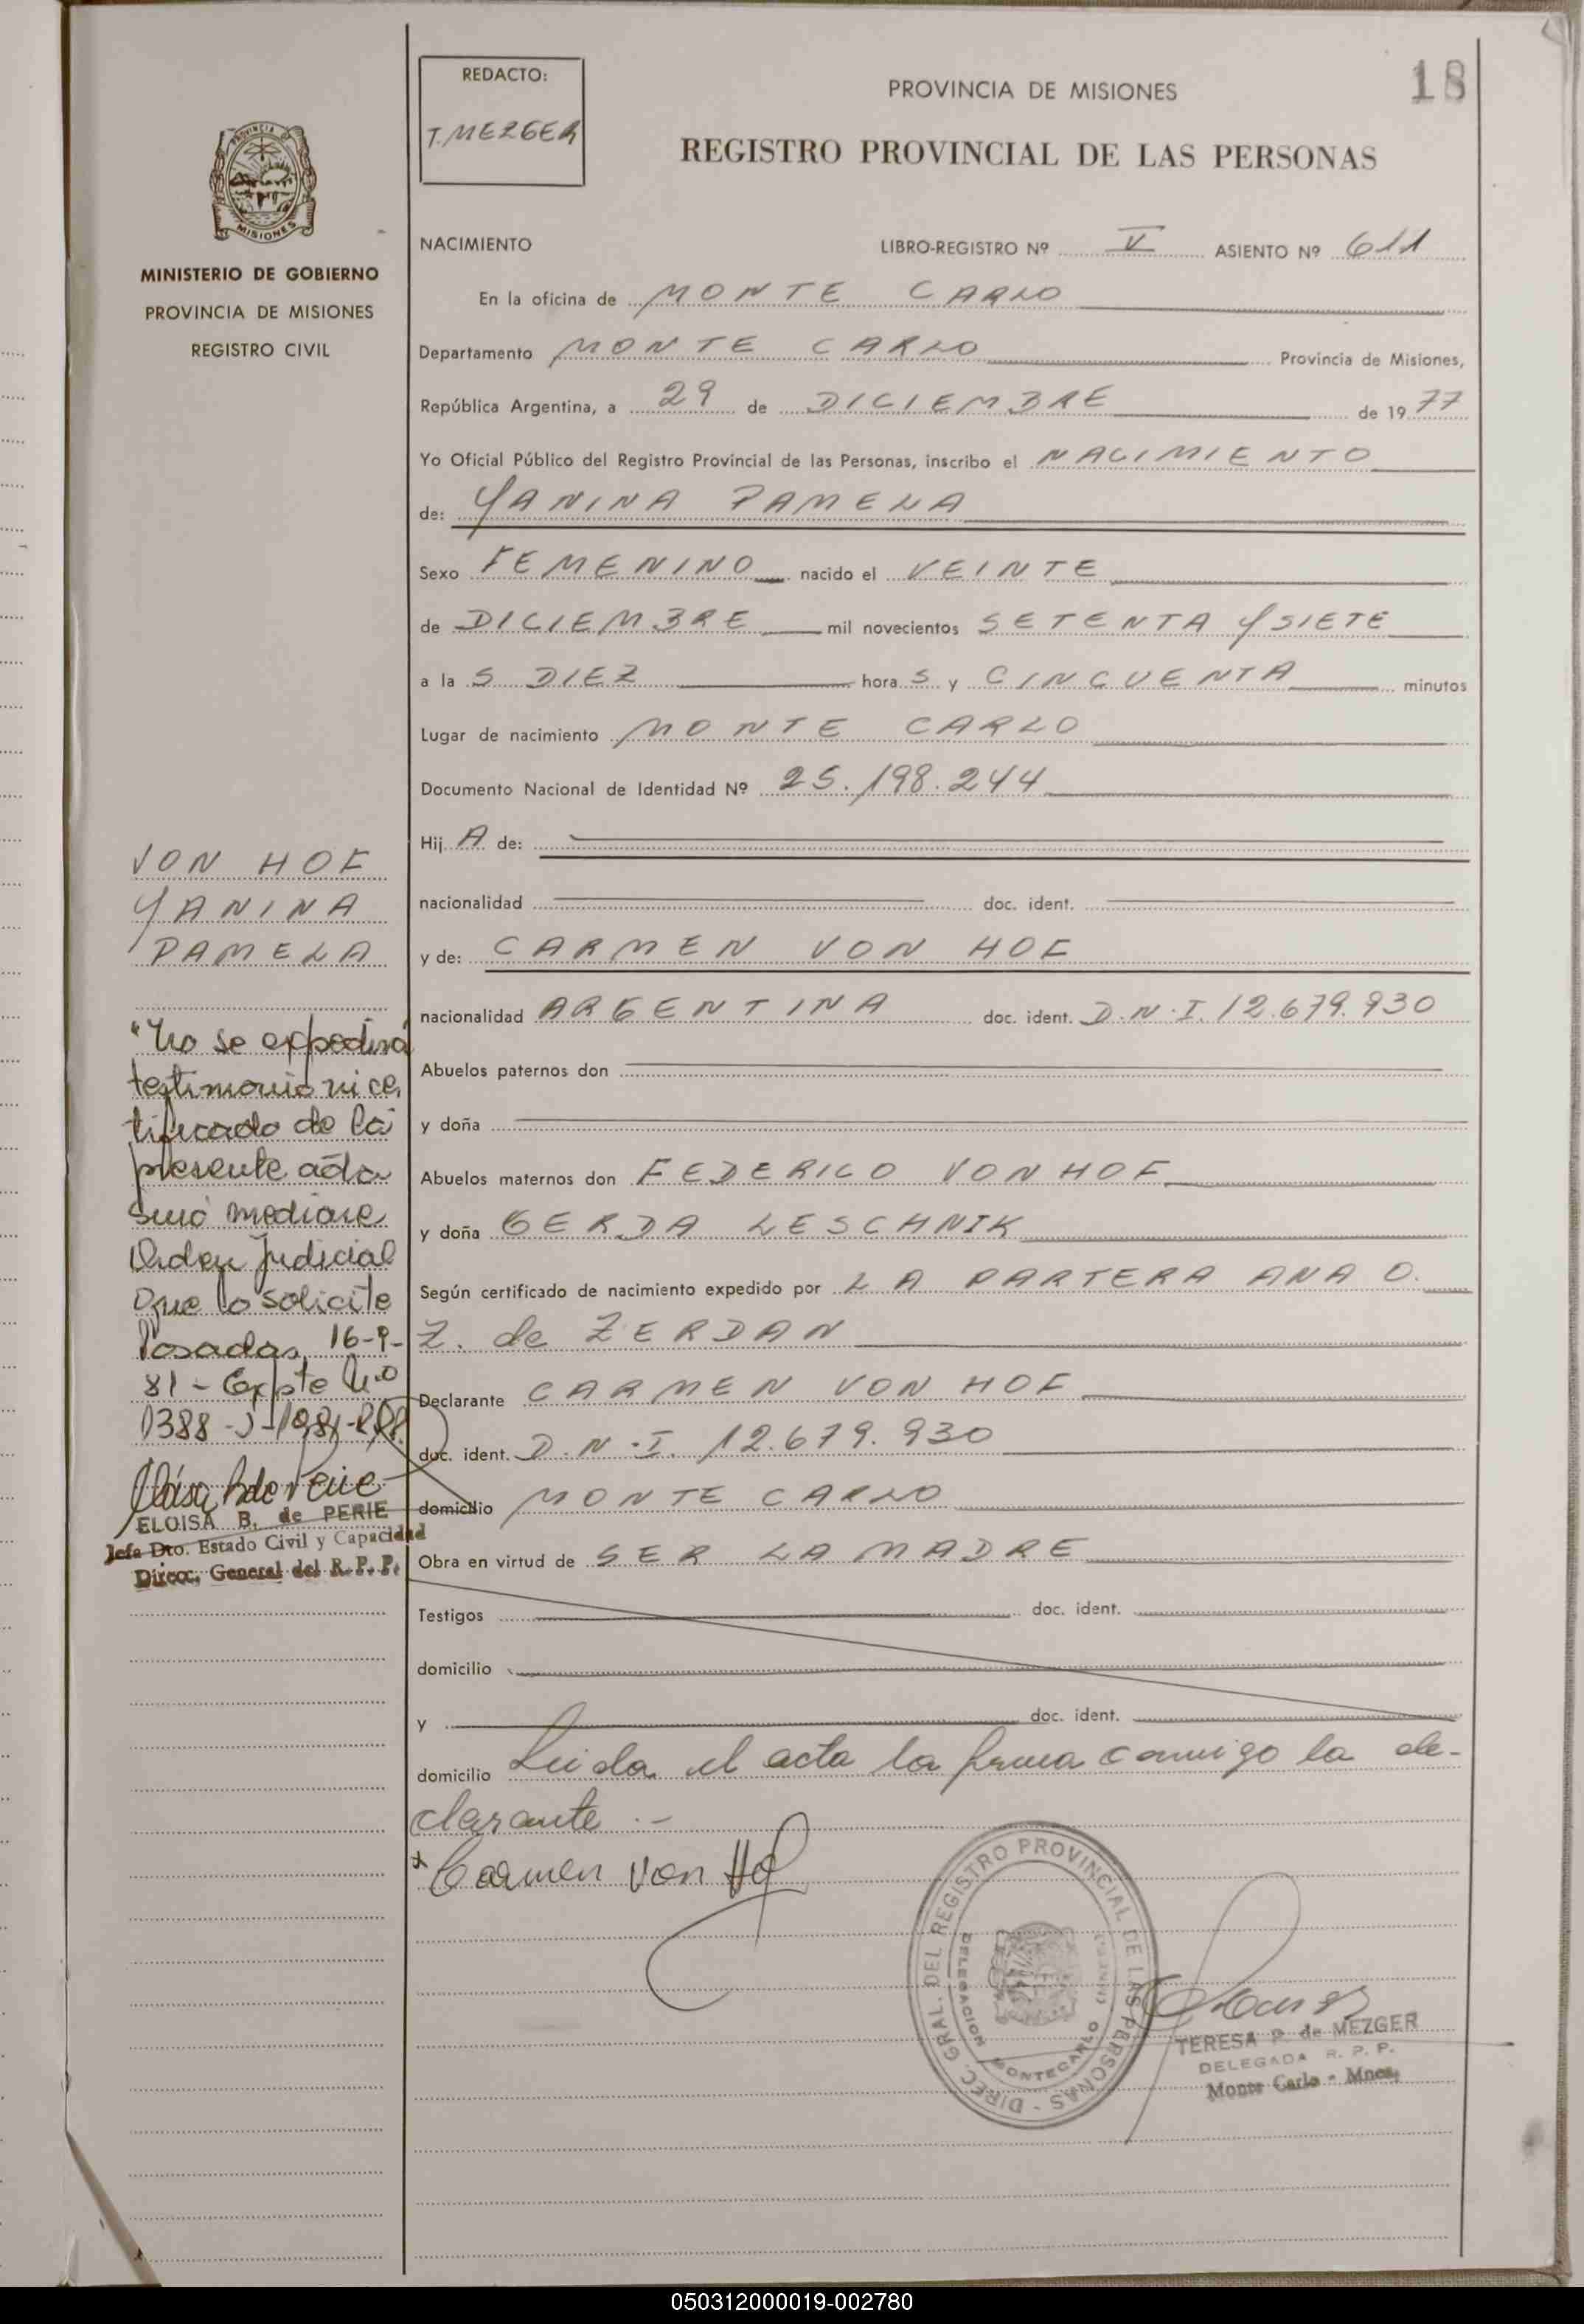 REDACTO:
T. MEZGER
PROVINCIA DE MISIONES
18
REGISTRO PROVINCIAL DE LAS PERSONAS
PROVINCIA
MISIONES
MINISTERIO DE GOBIERNO
PROVINCIA DE MISIONES
REGISTRO CIVIL
NACIMIENTO LIBRO-REGISTRO Nº V ASIENTO Nº 611
En la oficina de MONTE CARLO
Departamento MONTE CARLO Provincia de Misiones,
República Argentina, a 29 de DICIEMBRE de 1977
Yo Oficial Público del Registro Provincial de las Personas, inscribo el NACIMIENTO
de: YANINA PAMELA
Sexo FEMENINO nacido el VEINTE
de DICIEMBRE mil novecientos SETENTA Y SIETE
a la S DIEZ hora S y CINCUENTA minutos
Lugar de nacimiento MONTE CARLO
Documento Nacional de Identidad Nº 25.198.244
Hij A de:
nacionalidad doc. ident.
y de: CARMEN VON HOF
nacionalidad ARGENTINA doc. ident. D.N.I. 12.679.930
Abuelos paternos don
y doña
Abuelos maternos don FEDERICO VON HOF
y doña GERDA LESCHNIK
Según certificado de nacimiento expedido por LA PARTERA ANA O.
Z. de ZERDAN
Declarante CARMEN VON HOF
doc. ident. D.N.I. 12.679.930
domicilio MONTE CARLO
Obra en virtud de SER LA MADRE
Testigos doc. ident.
domicilio
y doc. ident.
domicilio Leida el acta la firma conmigo la de-
clarante.-
Carmen von Hof
VON HOF
YANINA
PAMELA
"No se expedirá
testimonio ni cer
tificado de la
presente acta
sino mediare
Orden Judicial
Que lo solicite
Posadas, 16-9-
81 - Expte Nº
1388-J-1981-RPP.
ELOISA B. de PERIE
Jefa Dto. Estado Civil y Capacidad
Direcc. General del R.P.P.
DIREC. GRAL. DEL REGISTRO PROVINCIAL DE LAS PERSONAS -
DELEGACION MONTECARLO (MNES.)
TERESA P. de MEZGER
DELEGADA R. P. P.
Monte Carlo - Mnes.
050312000019-002780